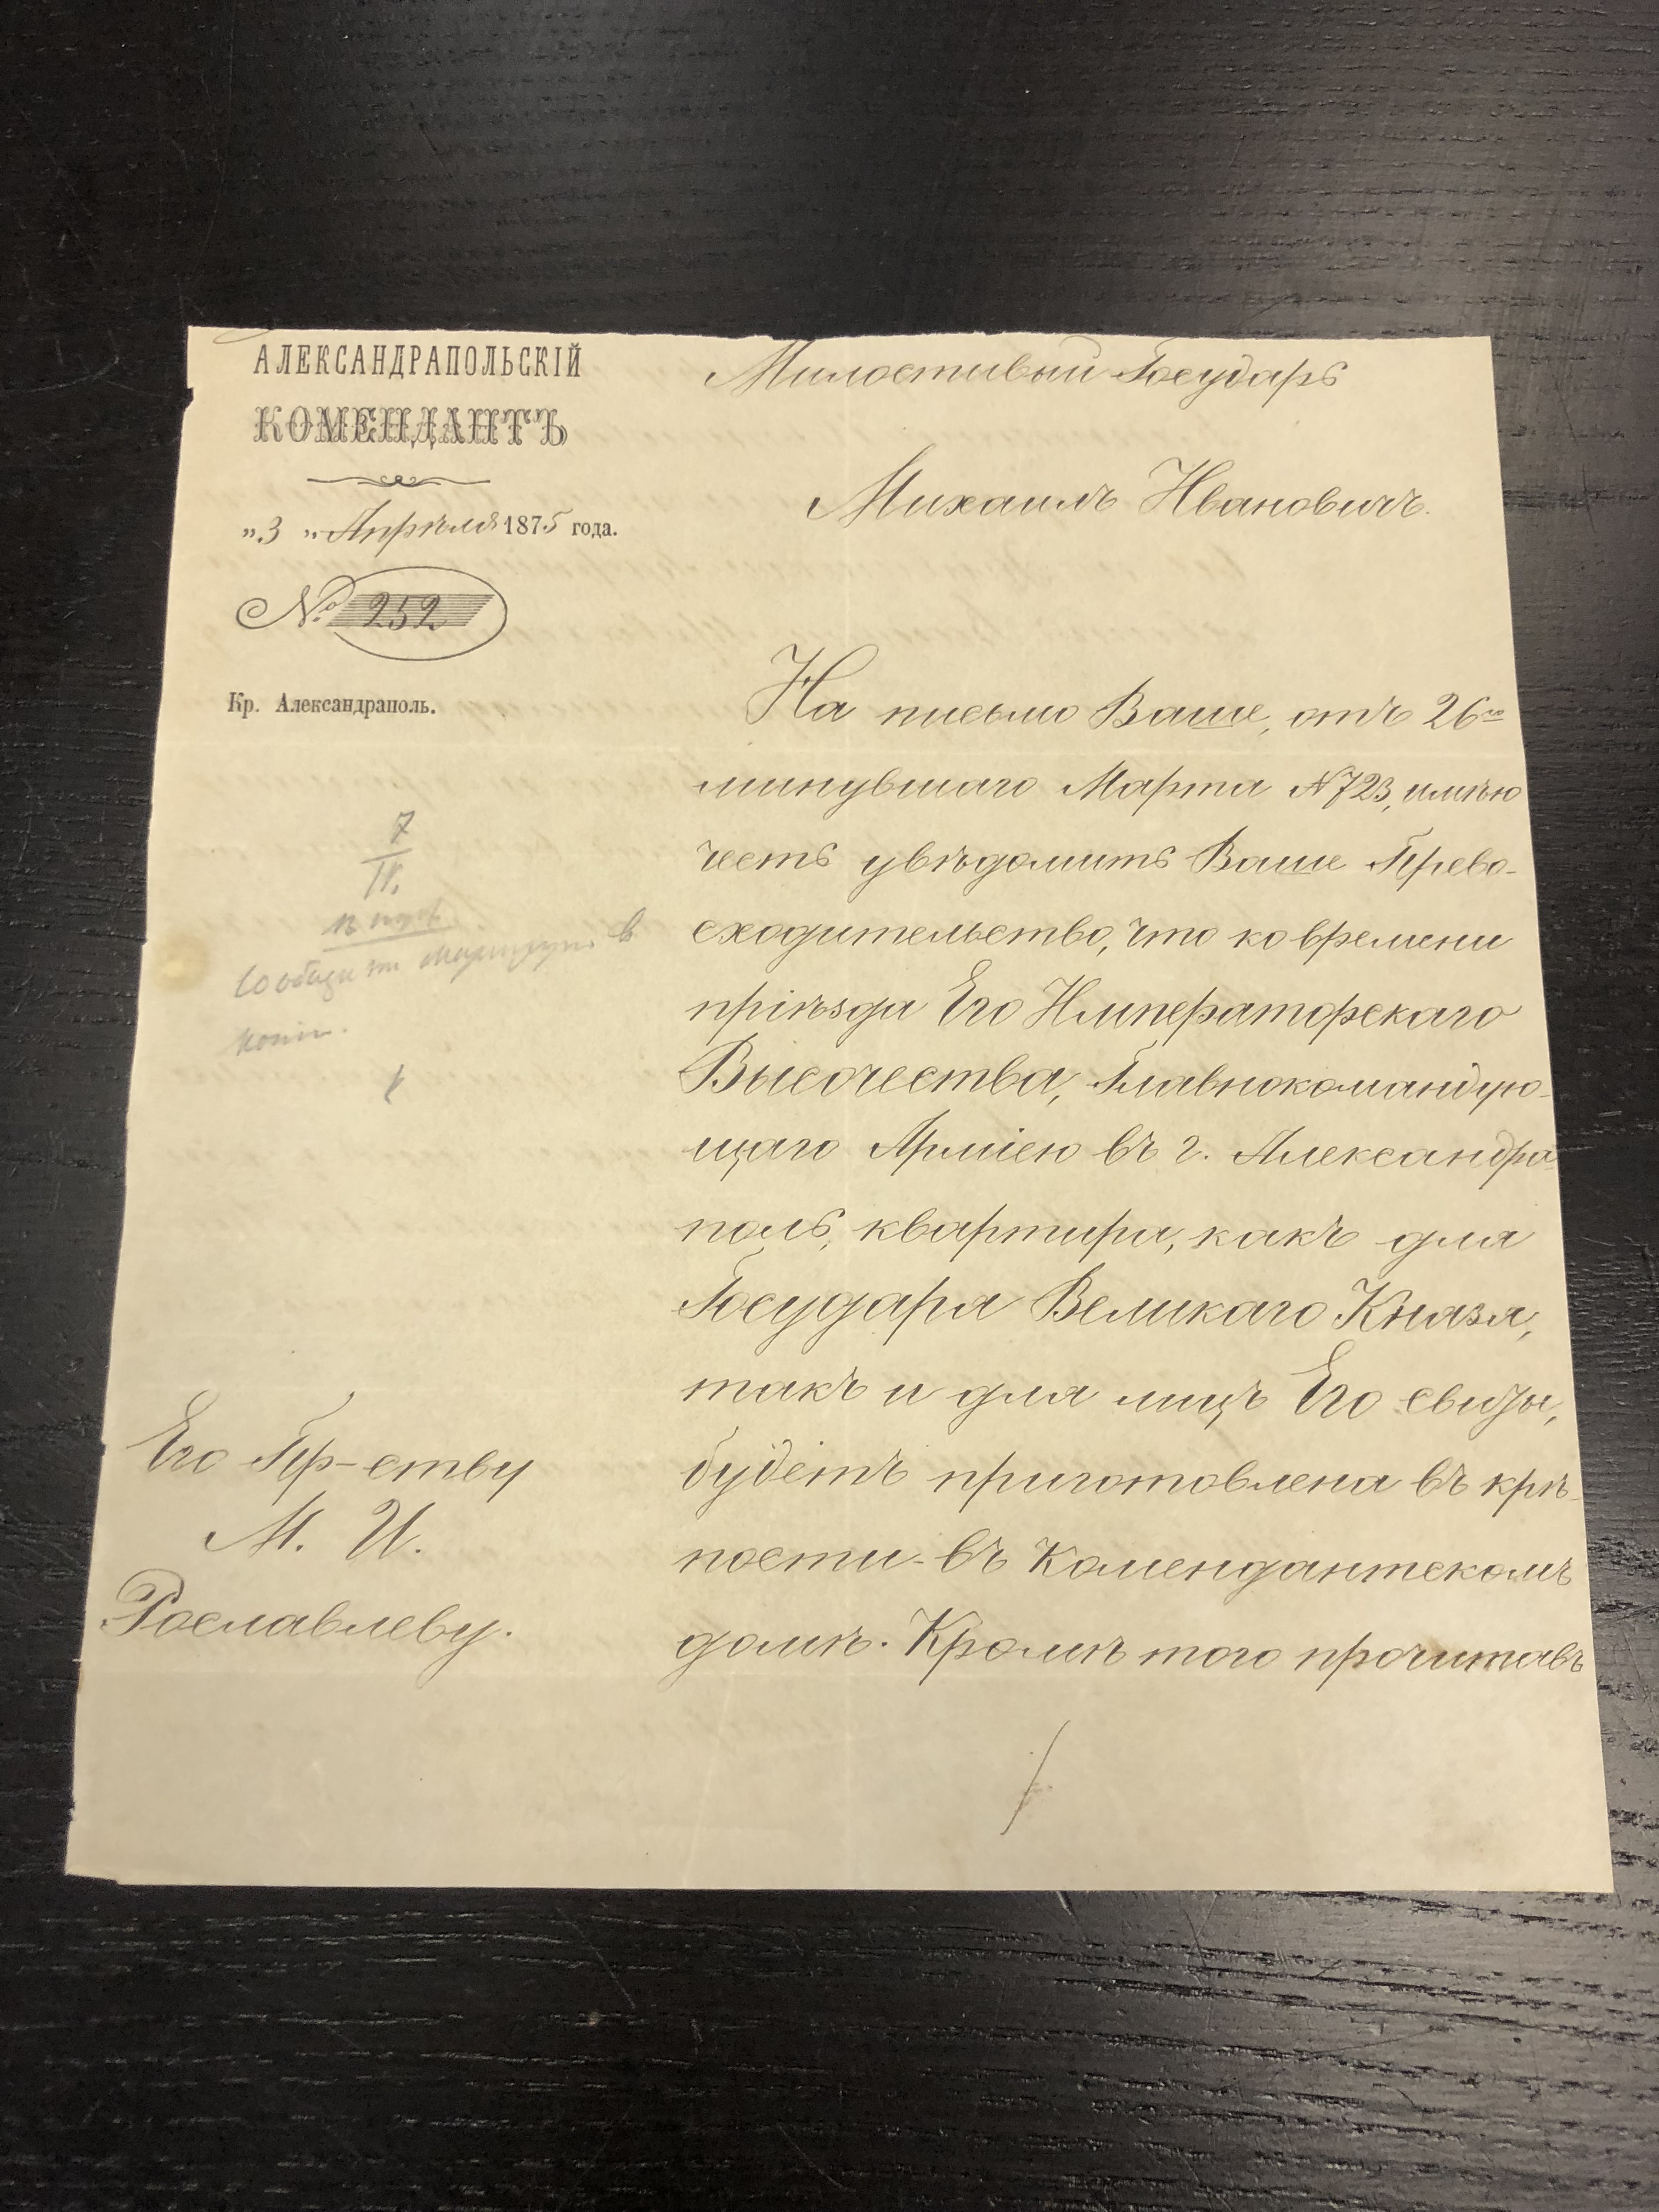 АЛЕКСАНДРАПОЛЬСКІЙ
КОМЕНДАНТЪ
„3 „ Апрѣля 1875 года.
№ 252
Кр. Александраполь.
7
IV.
Сообщить маршрутъ в
копіи.
Его Пр-ству
М. И.
Рославлеву.
Милостивый Государь
Михаилъ Ивановичъ.
На письмо Ваше, отъ 26го
минувшаго Марта №723, имѣю
честь увѣдомить Ваше Прево-
сходительство, что ко времени
пріѣзда Его Императорскаго
Высочества, Главнокомандую-
щаго Арміею въ г. Александра-
поль, квартира, какъ для
Государя Великаго Князя,
такъ и для лицъ Его свиты,
будетъ приготовлена въ крѣ-
пости - въ Комендантскомъ
домѣ. Кромѣ того прочитавъ